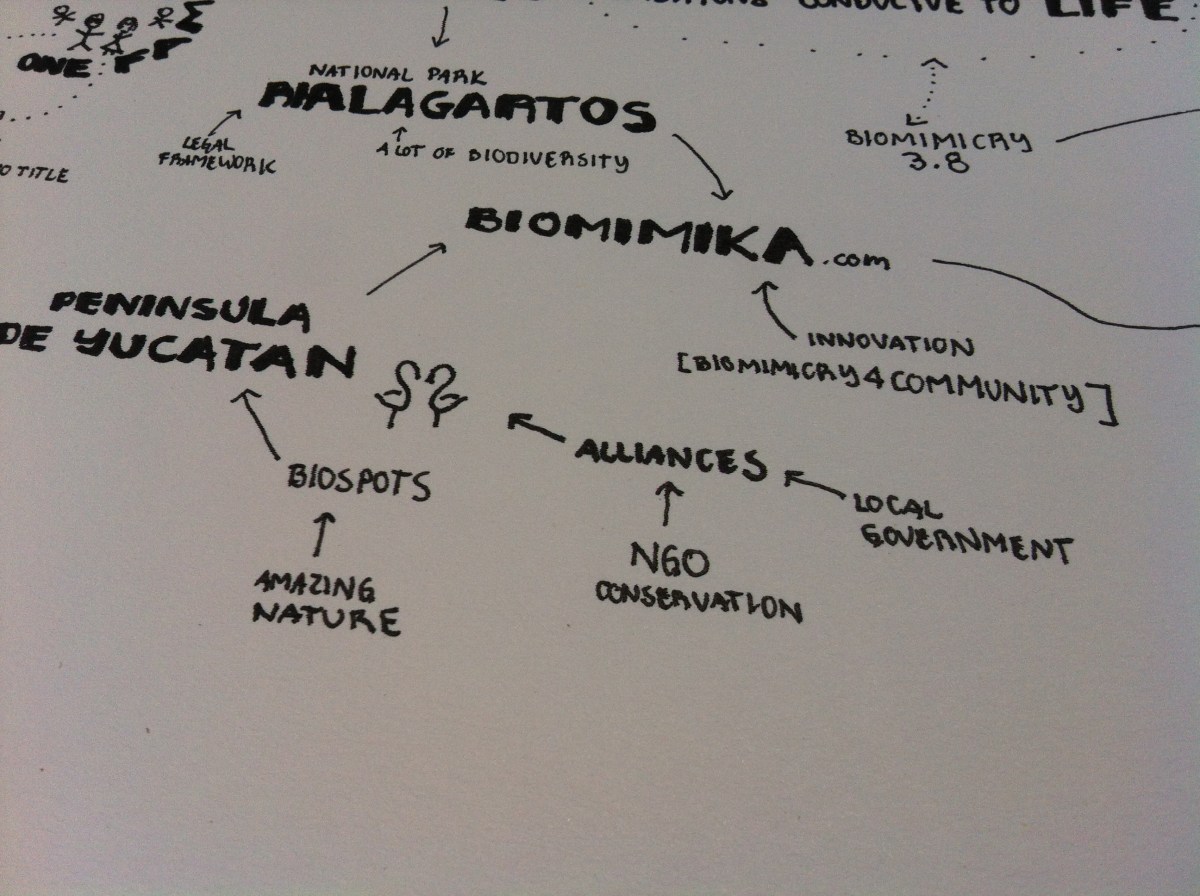 CONDUCIVE TO LIFE
ONE
NATIONAL PARK
RIALAGARTOS
LEGAL
FRAMEWORK
A LOT OF BIODIVERSITY
BIOMIMICRY
3.8
TITLE
BIOMIMIKA.com
PENINSULA
DE YUCATAN
INNOVATION
[BIOMIMICRY 4 COMMUNITY]
ALLIANCES
BIOSPOTS
LOCAL
GOVERNMENT
AMAZING
NATURE
NGO
CONSERVATION